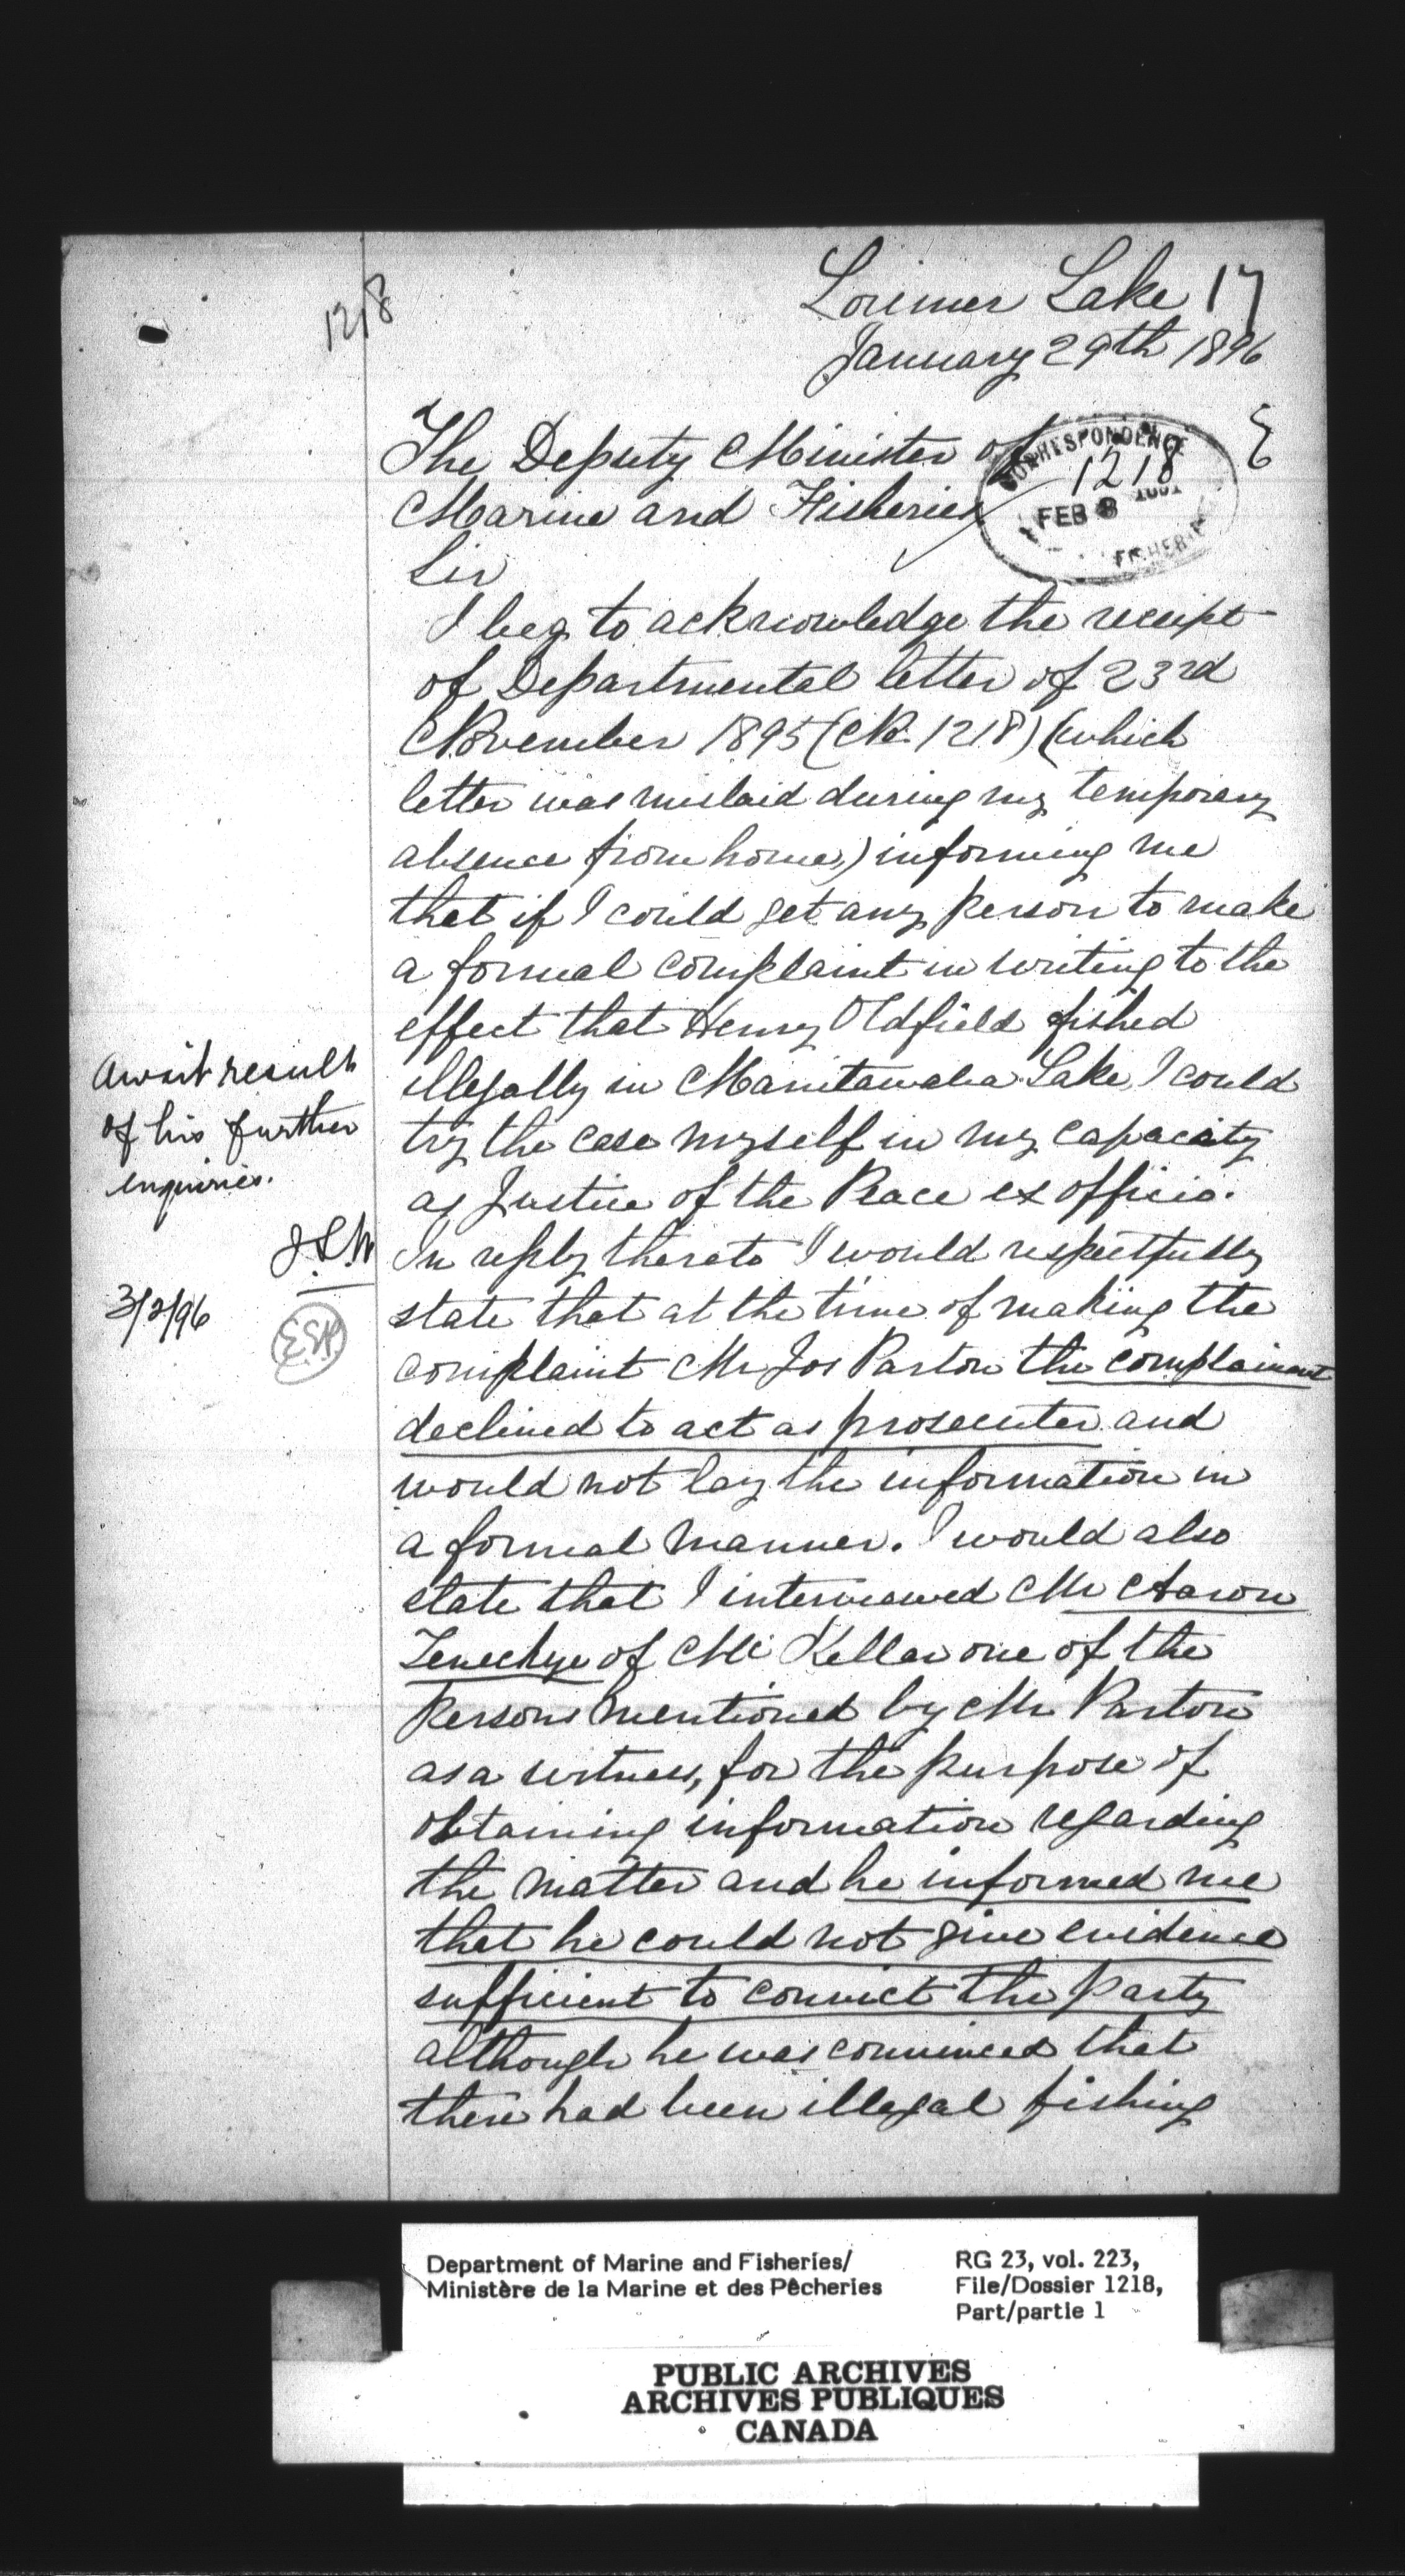 1218
Lorimer Lake 17
January 29th 1896
The Deputy Minister of
Marine and Fisheries
CORRESPONDENCE
1218
FEB 3
FISHERIE
Sir
I beg to acknowledge the receipt
of Departmental letter of 23rd
November 1895 (No. 1218) (which
letter was mislaid during my temporary
absence from home,) informing me
that if I could get any person to make
a formal complaint in writing to the
effect that Henry Oldfield fished
illegally in Manitawaba Lake, I could
try the case myself in my capacity
as Justice of the Peace ex officio.
In reply thereto I would respectfully
state that at the time of making the
complaint Mr Jos Parton the complainant
declined to act as prosecuter and
would not lay the information in
a formal manner. I would also
state that I interviewed Mr Aaron
of Mc Kellar one of the
persons mentioned by Mr Parton
as a witness, for the purpose of
obtaining information regarding
the matter and he informed me
that he could not give evidence
sufficient to convict the party
although he was convinced that
there had been illegal fishing
Await result
of his further
enquiries.
3/2/96
Department of Marine and Fisheries/
Ministère de la Marine et des Pêcheries
RG 23, vol. 223,
File/Dossier 1218,
Part/partie 1
PUBLIC ARCHIVES
ARCHIVES PUBLIQUES
CANADA